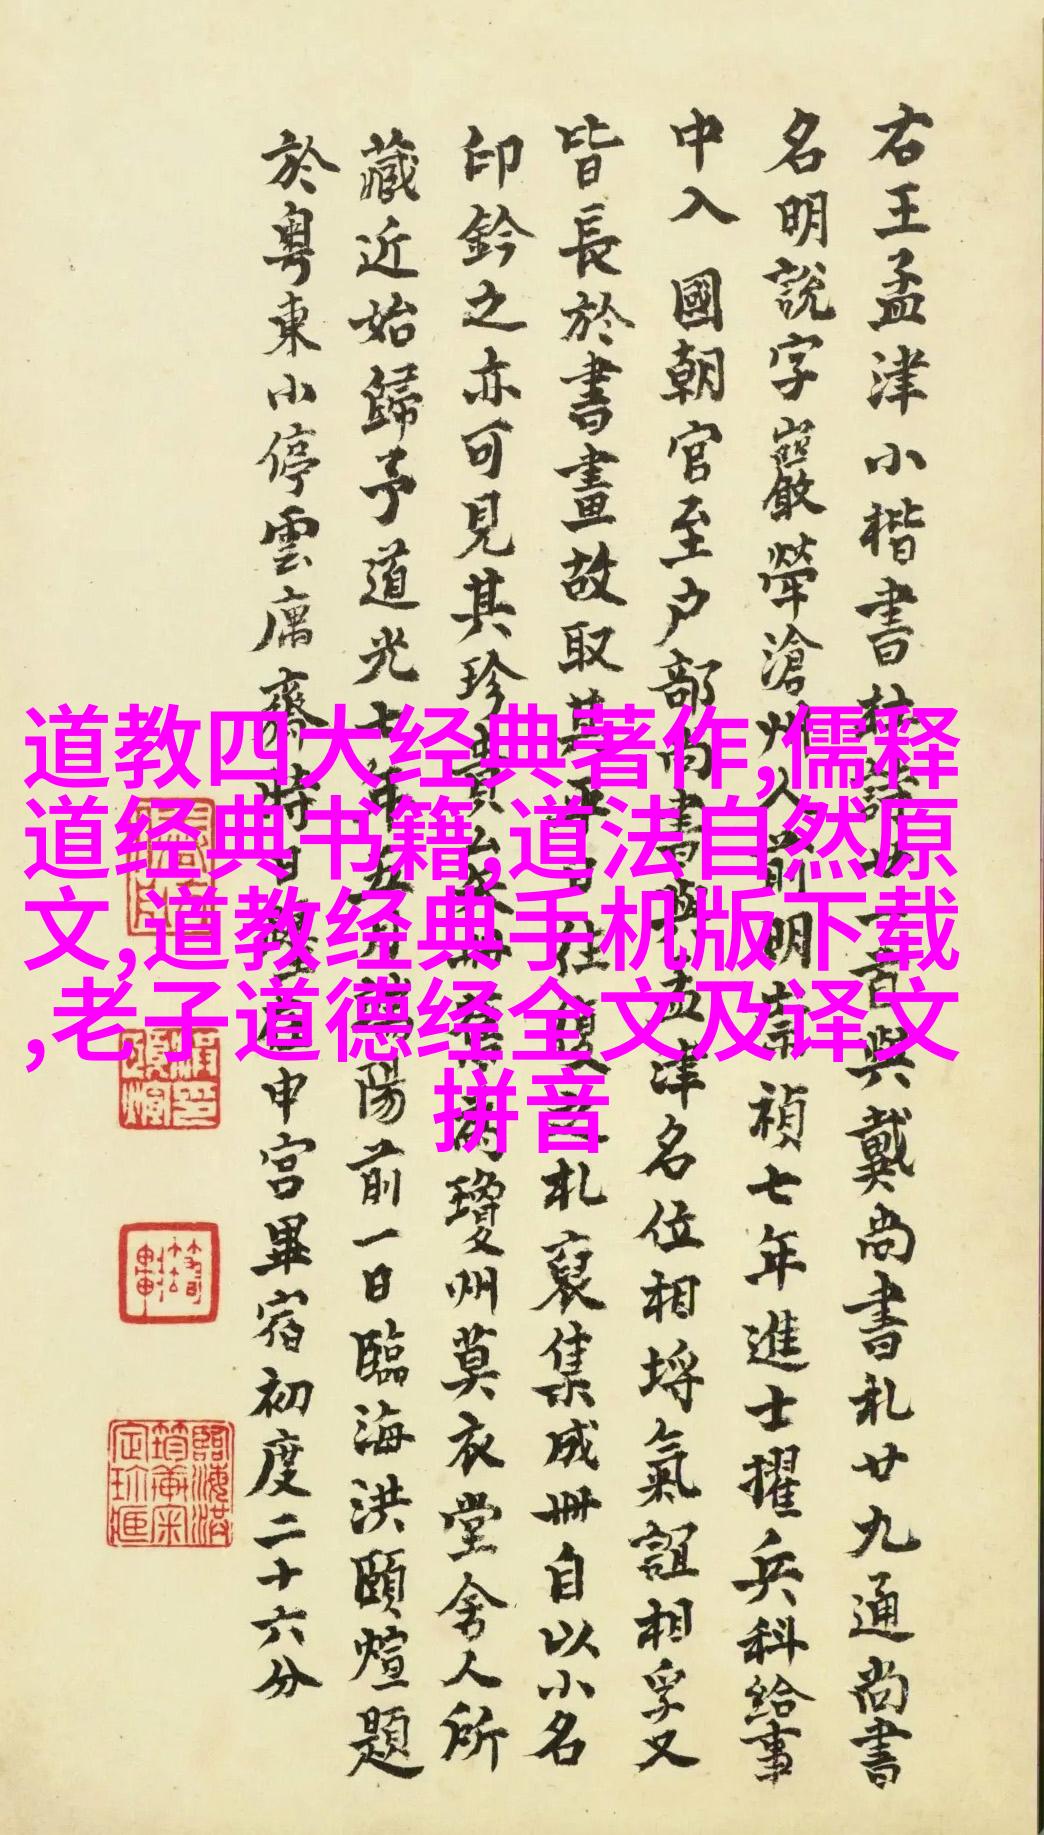 右王孟津小楷書杜詩廿一首與戴尚書札廿九通尚書
名明說字巖犖滄州人前明崇禎七年進士擢兵科給事
中入國朝官至户部尚書與孟津名位相埒氣誼相孚又
皆長於書畫故取其平日往復之札裒集成冊自以小名
印鈐之亦可見其珍賞
瓊州莫衣堂舍人所
藏近始歸予道光七年
陽前一日臨海洪頤煊題
於粵東小停雲
齋時日
申宫畢宿初度二十六分
道教四大经典著作,儒释
道经典书籍,道法自然原
文,道教经典手机版下载
,老子道德经全文及译文
拼音